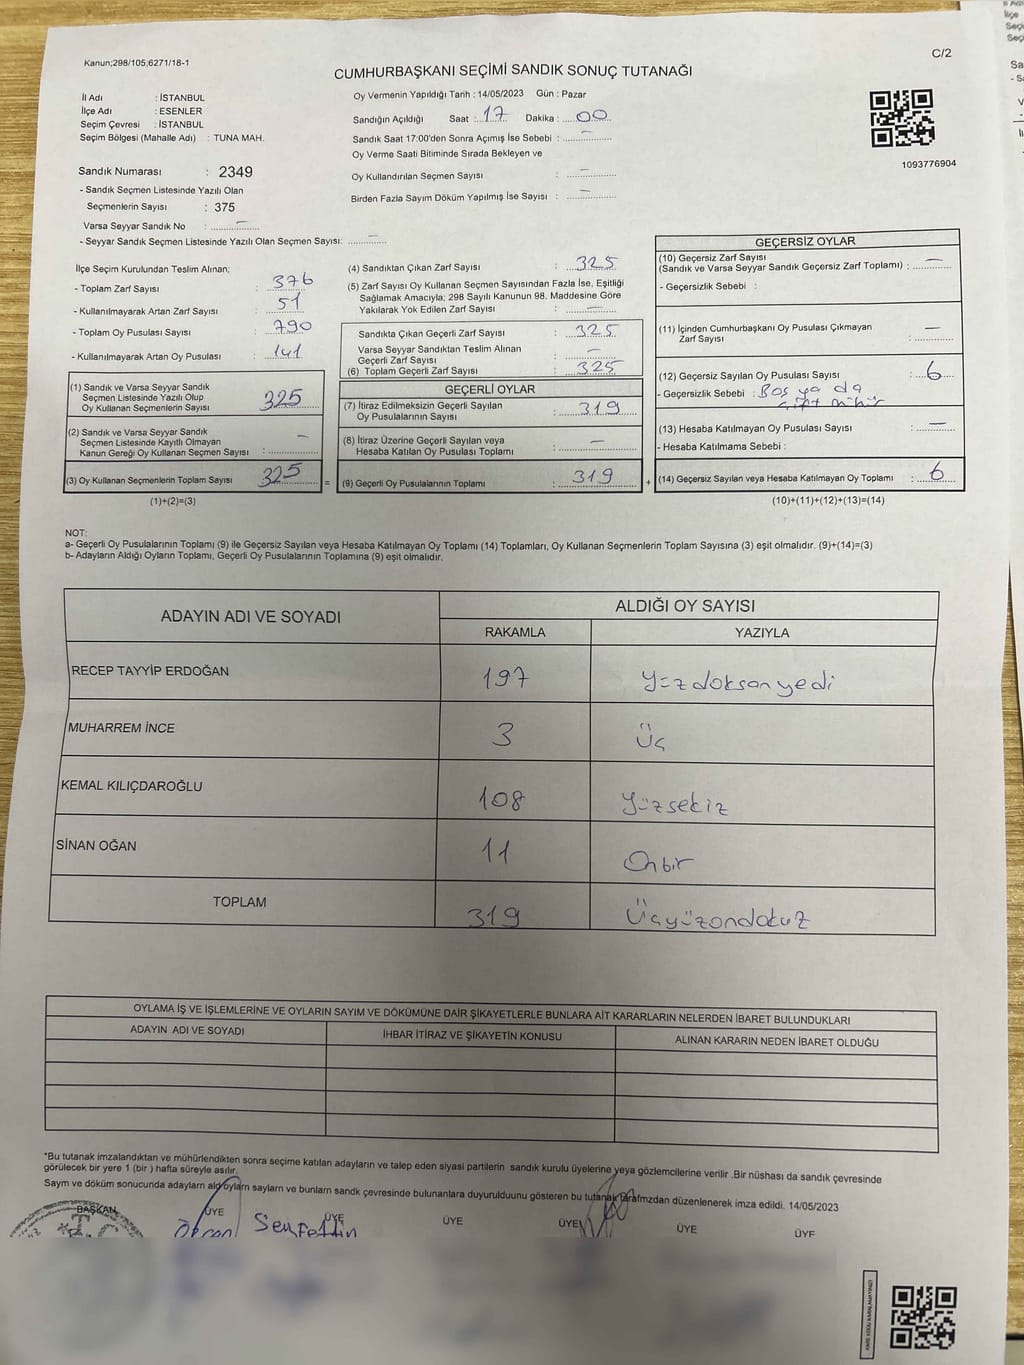 Kanun;298/105;6271/18-1
C/2
CUMHURBAŞKANI SEÇİMİ SANDIK SONUÇ TUTANAĞI
İl Adı : İSTANBUL
İlçe Adı : ESENLER
Seçim Çevresi : İSTANBUL
Seçim Bölgesi (Mahalle Adı) : TUNA MAH.
Oy Vermenin Yapıldığı Tarih : 14/05/2023 Gün : Pazar
Sandığın Açıldığı Saat : 17 Dakika : 00
Sandık Saat 17:00'den Sonra Açımış İse Sebebi : –
Oy Verme Saati Bitiminde Sırada Bekleyen ve
Oy Kullandırılan Seçmen Sayısı : –
Birden Fazla Sayım Döküm Yapılmış İse Sayısı : –
1093776904
Sandık Numarası : 2349
- Sandık Seçmen Listesinde Yazılı Olan
Seçmenlerin Sayısı : 375
Varsa Seyyar Sandık No : –
- Seyyar Sandık Seçmen Listesinde Yazılı Olan Seçmen Sayısı: –
İlçe Seçim Kurulundan Teslim Alınan;
- Toplam Zarf Sayısı : 376
- Kullanılmayarak Artan Zarf Sayısı : 51
- Toplam Oy Pusulası Sayısı : 790
- Kullanılmayarak Artan Oy Pusulası : 141
(1) Sandık ve Varsa Seyyar Sandık
Seçmen Listesinde Yazılı Olup
Oy Kullanan Seçmenlerin Sayısı : 325
(2) Sandık ve Varsa Seyyar Sandık
Seçmen Listesinde Kayıtlı Olmayan
Kanun Gereği Oy Kullanan Seçmen Sayısı : –
(3) Oy Kullanan Seçmenlerin Toplam Sayısı : 325
(1)+(2)=(3)
(4) Sandıktan Çıkan Zarf Sayısı : 325
(5) Zarf Sayısı Oy Kullanan Seçmen Sayısından Fazla İse, Eşitliği
Sağlamak Amacıyla; 298 Sayılı Kanunun 98. Maddesine Göre
Yakılarak Yok Edilen Zarf Sayısı : –
Sandıkta Çıkan Geçerli Zarf Sayısı : 325
Varsa Seyyar Sandıktan Teslim Alınan
Geçerli Zarf Sayısı : –
(6) Toplam Geçerli Zarf Sayısı : 325
GEÇERLİ OYLAR
(7) İtiraz Edilmeksizin Geçerli Sayılan
Oy Pusulalarının Sayısı : 319
(8) İtiraz Üzerine Geçerli Sayılan veya
Hesaba Katılan Oy Pusulası Toplamı : –
= (9) Geçerli Oy Pusulalarının Toplamı : 319
GEÇERSİZ OYLAR
(10) Geçersiz Zarf Sayısı
(Sandık ve Varsa Seyyar Sandık Geçersiz Zarf Toplamı) : –
- Geçersizlik Sebebi :
(11) İçinden Cumhurbaşkanı Oy Pusulası Çıkmayan
Zarf Sayısı : –
(12) Geçersiz Sayılan Oy Pusulası Sayısı : 6
- Geçersizlik Sebebi : Boş ya da
çift mühür
(13) Hesaba Katılmayan Oy Pusulası Sayısı : –
- Hesaba Katılmama Sebebi :
+ (14) Geçersiz Sayılan veya Hesaba Katılmayan Oy Toplamı : 6
(10)+(11)+(12)+(13)=(14)
NOT:
a- Geçerli Oy Pusulalarının Toplamı (9) ile Geçersiz Sayılan veya Hesaba Katılmayan Oy Toplamı (14) Toplamları, Oy Kullanan Seçmenlerin Toplam Sayısına (3) eşit olmalıdır. (9)+(14)=(3)
b- Adayların Aldığı Oyların Toplamı, Geçerli Oy Pusulalarının Toplamına (9) eşit olmalıdır.
ADAYIN ADI VE SOYADI
ALDIĞI OY SAYISI
RAKAMLA YAZIYLA
RECEP TAYYİP ERDOĞAN 197 Yüzdoksanyedi
MUHARREM İNCE 3 Üç
KEMAL KILIÇDAROĞLU 108 Yüzsekiz
SİNAN OĞAN 11 Onbir
TOPLAM 319 Üçyüzondokuz
OYLAMA İŞ VE İŞLEMLERİNE VE OYLARIN SAYIM VE DÖKÜMÜNE DAİR ŞİKAYETLERLE BUNLARA AİT KARARLARIN NELERDEN İBARET BULUNDUKLARI
ADAYIN ADI VE SOYADI İHBAR İTİRAZ VE ŞİKAYETİN KONUSU ALINAN KARARIN NEDEN İBARET OLDUĞU
*Bu tutanak imzalandıktan ve mühürlendikten sonra seçime katılan adayların ve talep eden siyasi partilerin sandık kurulu üyelerine veya gözlemcilerine verilir .Bir nüshası da sandık çevresinde
görülecek bir yere 1 (bir ) hafta süreyle asılır.
Sayım ve döküm sonucunda adayların aldığı oyların sayıları ve bunların sandık çevresinde bulunanlara duyurulduunu gösteren bu tutanak tarafmzdan düzenlenerek imza edildi. 14/05/2023
BAŞKAN ÜYE ÜYE ÜYE ÜYE ÜYE ÜYE
T.C.